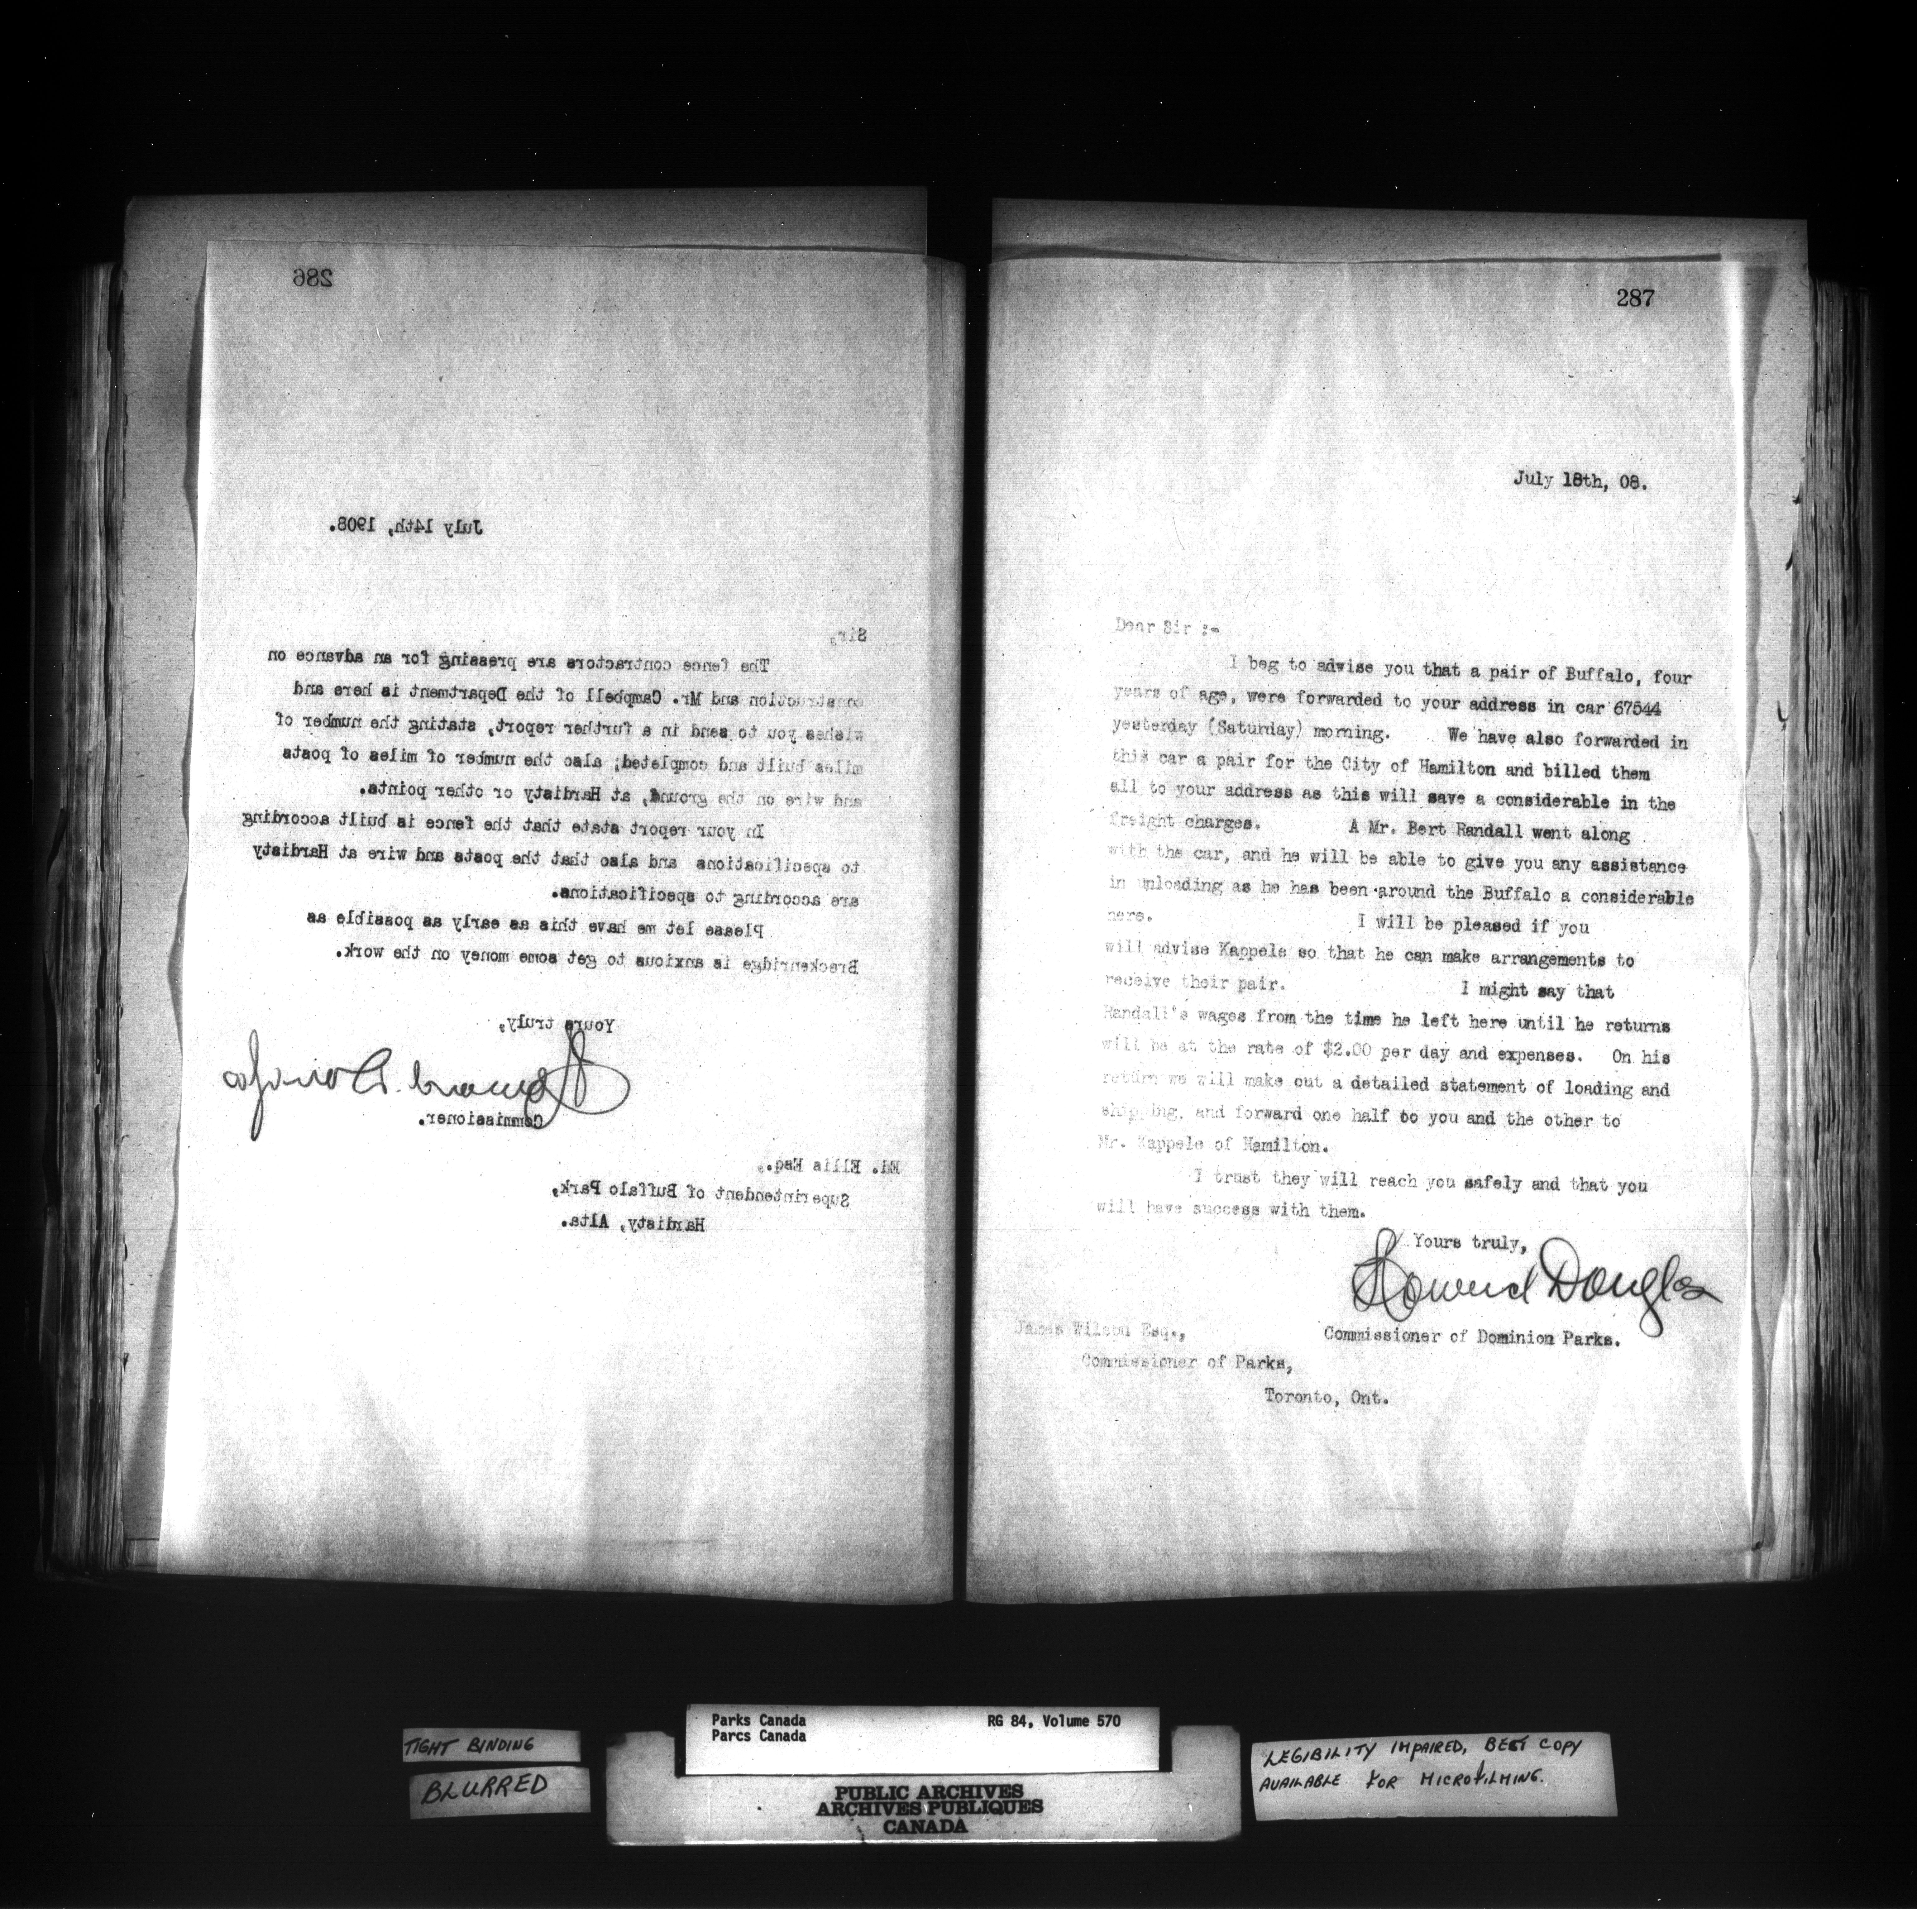 286
July 14th, 1908.
Sir,
The fence contractors are pressing for an advance on
construction and Mr. Campbell of the Department is here and
wishes you to send in a further report, stating the number of
miles built and completed; also the number of miles of posts
and wire on the ground, at Hardisty or other points.
In your report state that the fence is built according
to specifications and also that the posts and wire at Hardisty
are according to specifications.
Please let me have this as early as possible as
Breckenridge is anxious to get some money on the work.
Yours truly,
Howard Douglas
Commissioner.
Ed. Ellis Esq.,
Superintendent of Buffalo Park,
Hardisty, Alta.
287
July 18th, 08.
Dear Sir :-
I beg to advise you that a pair of Buffalo, four
years of age, were forwarded to your address in car 67544
yesterday (Saturday) morning. We have also forwarded in
this car a pair for the City of Hamilton and billed them
all to your address as this will save a considerable in the
freight charges. A Mr. Bert Randall went along
with the car, and he will be able to give you any assistance
in unloading as he has been around the Buffalo a considerable
here. I will be pleased if you
will advise Kappele so that he can make arrangements to
receive their pair. I might say that
Randall's wages from the time he left here until he returns
will be at the rate of $2.00 per day and expenses. On his
return we will make out a detailed statement of loading and
shipping, and forward one half to you and the other to
Mr. Kappele of Hamilton.
I trust they will reach you safely and that you
will have success with them.
Yours truly,
Howard Douglas
Commissioner of Dominion Parks.
James Wilson Esq.,
Commissioner of Parks,
Toronto, Ont.
TIGHT BINDING
BLURRED
Parks Canada
Parcs Canada
RG 84, Volume 570
PUBLIC ARCHIVES
ARCHIVES PUBLIQUES
CANADA
LEGIBILITY IMPAIRED, BEST COPY
AVAILABLE FOR MICROFILMING.